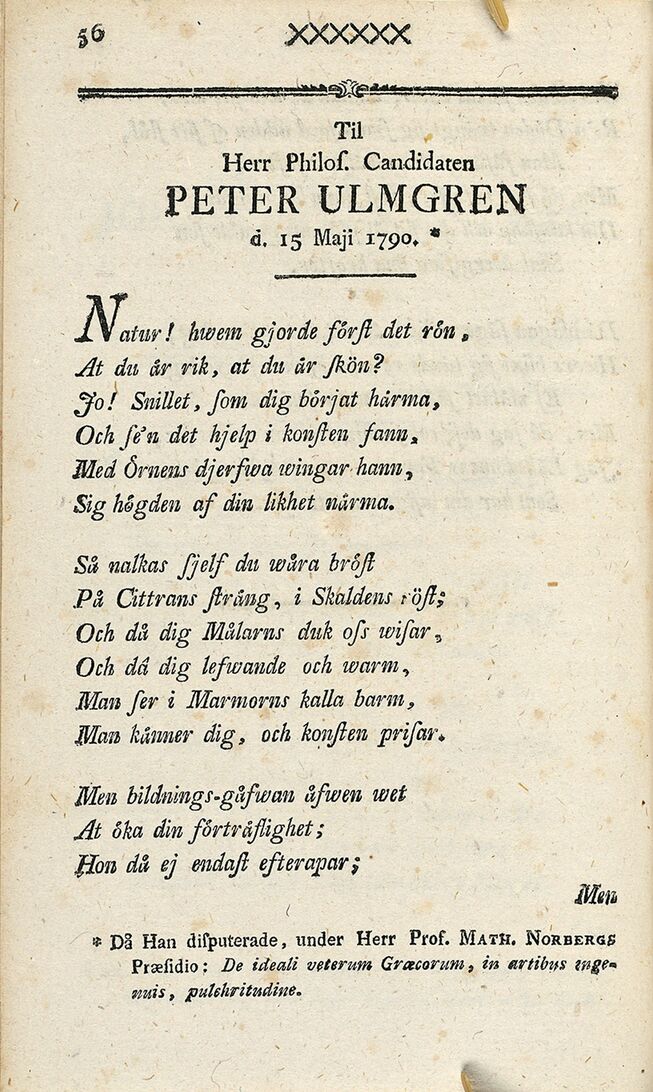 56 XXXXXX
Til
Herr Philoſ. Candidaten
PETER ULMGREN
d. 15 Maji 1790. *
Natur! hwem gjorde förſt det rön,
At du är rik, at du är ſkön?
Jo! Snillet, ſom dig börjat härma,
Och ſe'n det hjelp i konſten fann,
Med Örnens djerfwa wingar hann,
Sig högden af din likhet närma.
Så nalkas ſjelf du wåra bröſt
På Cittrans ſträng, i Skaldens röſt;
Och då dig Målarns duk oſs wiſar,
Och då dig lefwande och warm,
Man ſer i Marmorns kalla barm,
Man känner dig, och konſten priſar.
Men bildnings-gåfwan äfwen wet
At öka din förträflighet;
Hon då ej endaſt efterapar;
Men
* Då Han diſputerade, under Herr Prof. MATH. NORBERGS
Præſidio: De ideali veterum Græcorum, in artibus inge-
nuis, pulchritudine.